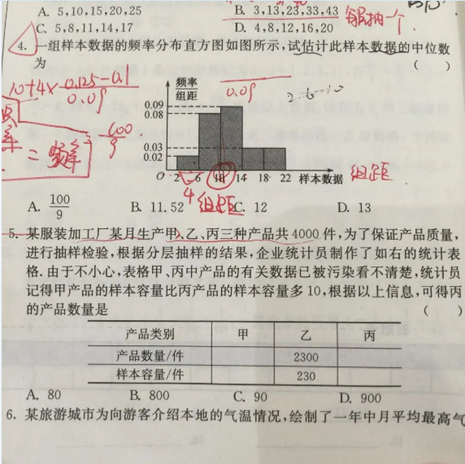 A. 5,10,15,20,25 B. 3,13,23,33,43
C. 5,8,11,14,17 D. 4,8,12,16,20
4. 一组样本数据的频率分布直方图如图所示,试估计此样本数据的中位数
为 ( )
频率
组距
0.09
0.09
0.08
0.03
0.02
O 2 6 10 14 18 22 样本数据
组距
4 组距
A. 100/9 B. 11.52 C. 12 D. 13
5. 某服装加工厂某月生产甲、乙、丙三种产品共4000件,为了保证产品质量,
进行抽样检验,根据分层抽样的结果,企业统计员制作了如右的统计表
格.由于不小心,表格甲、丙中产品的有关数据已被污染看不清楚,统计员
记得甲产品的样本容量比丙产品的样本容量多10,根据以上信息,可得丙
的产品数量是 ( )
产品类别 甲 乙 丙
产品数量/件 2300
样本容量/件 230
A. 80 B. 800 C. 90 D. 900
6. 某旅游城市为向游客介绍本地的气温情况,绘制了一年中月平均最高气